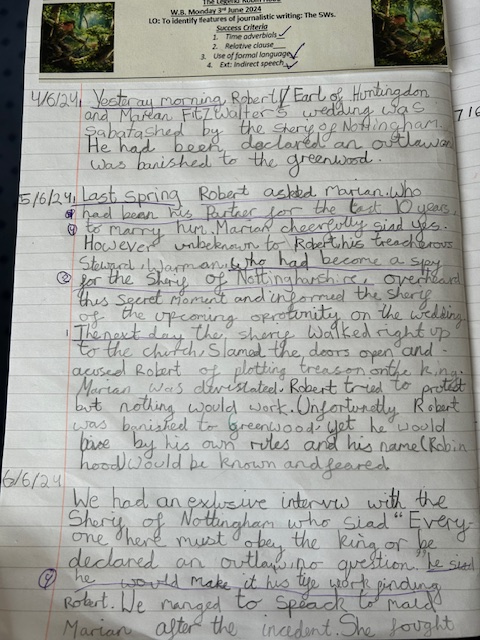 The Legend Robin Hood
W.B. Monday 3rd June 2024
LO: To identify features of journalistic writing: The 5Ws.
Success Criteria
1. Time adverbials
2. Relative clause
3. Use of formal language
4. Ext: Indirect speech
4/6/24 Yesteray morning Robert Earl of Huntingdon
and Marian FitzWalter's wedding was
sabatashed by the sherif of Nottingham.
He had been declared an outlaw
was banished to the greenwood.
716
5/6/24 Last Spring Robert asked Marian, who
had been his Partner for the last 10 years,
4 to marry him. Marian cheerfully siad yes.
However unbeknown to Robert his treacherous
Steward, Warman, who had become a spy
2 for the Sherif of Nottinghamshire, overheard
this secret moment and informed the sherif
of the upcoming oprotunity on the wedding.
1 The next day the sherif walked right up
to the church, Slamed the doors open and
acused Robert of plotting treason on the king.
Marian was devistated. Robert tried to protest
but nothing would work. Unfortunetly Robert
was banished to greenwood, yet he would
by his own rules and his name (Robin
hood) would be known and feared
6/6/24
We had an exlusive interviw with the
Sherif of Nottingham who siad "Every-
one here must obey the king or be
declared an outlaw, no question." he siad
4 he would make it his life work finding
Robert. We manged to speack to maid
Marian after the incident. She fought